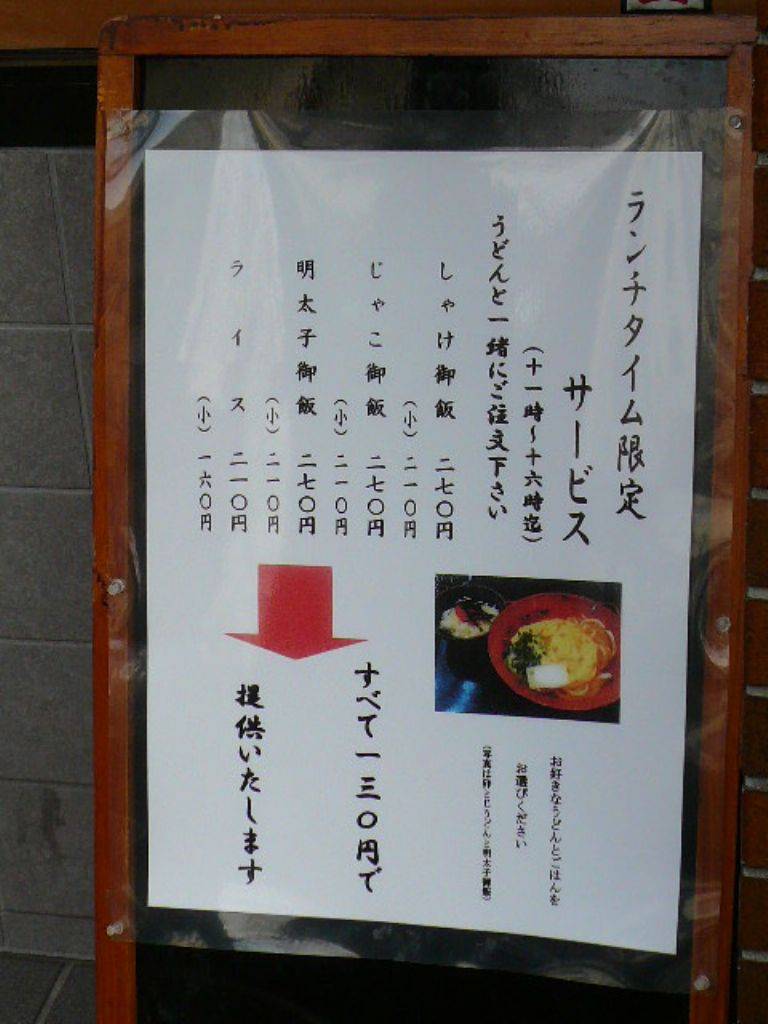 ランチタイム限定
サービス
(十一時〜十六時迄)
うどんと一緒にご注文下さい
しゃけ御飯 二七〇円
(小) 二一〇円
じゃこ御飯 二七〇円
(小) 二一〇円
明太子御飯 二七〇円
(小) 二一〇円
ライス 二一〇円
(小) 一六〇円
すべて一三〇円で
提供いたします
お好きなうどんとごはんを
お選びください
(写真は卵とじうどんと明太子御飯)